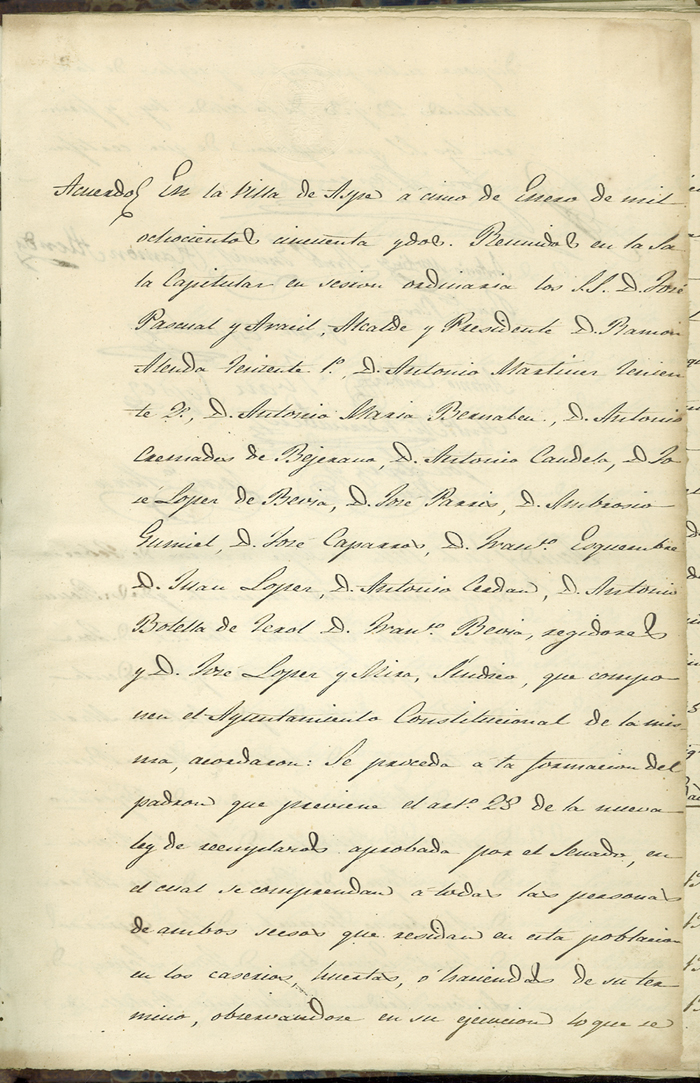 Acuerdo} En la Villa de Aspe a cinco de Enero de mil
ochocientos cincuenta y dos. Reunidos en la Sa-
la Capitular en sesion ordinaria los S.S. D. José
Pascual y Avail, Alcalde y Presidente D. Ramon
Alenda Teniente 1º, D. Antonio Martinez Tenien-
te 2º, D. Antonio Maria Bernabeu, D. Antonio
Cremades de Bejerano, D. Antonio Candela, D. Jo-
sé Lopez de Bevia, D. José Parris, D. Ambrosio
Gumiel, D. José Caparros, D. Franco. Esquembre
D. Juan Lopez, D. Antonio Cerdan, D. Antonio
Botella de Terol D. Franco. Bevia, regidores
y D. José Lopez y Mira, Sindico, que compo-
nen el Ayuntamiento Constitucional de la mis-
ma, acordaron: Se proceda a la formacion del
padron que previene el artº. 23 de la nueva
ley de reemplazos aprobada por el Senado, en
el cual se comprendan a todas las personas
de ambos secsos que residan en esta poblacion
en los caserios, huertas, ó haciendas de su ter-
mino, observandose en su ejecucion lo que se